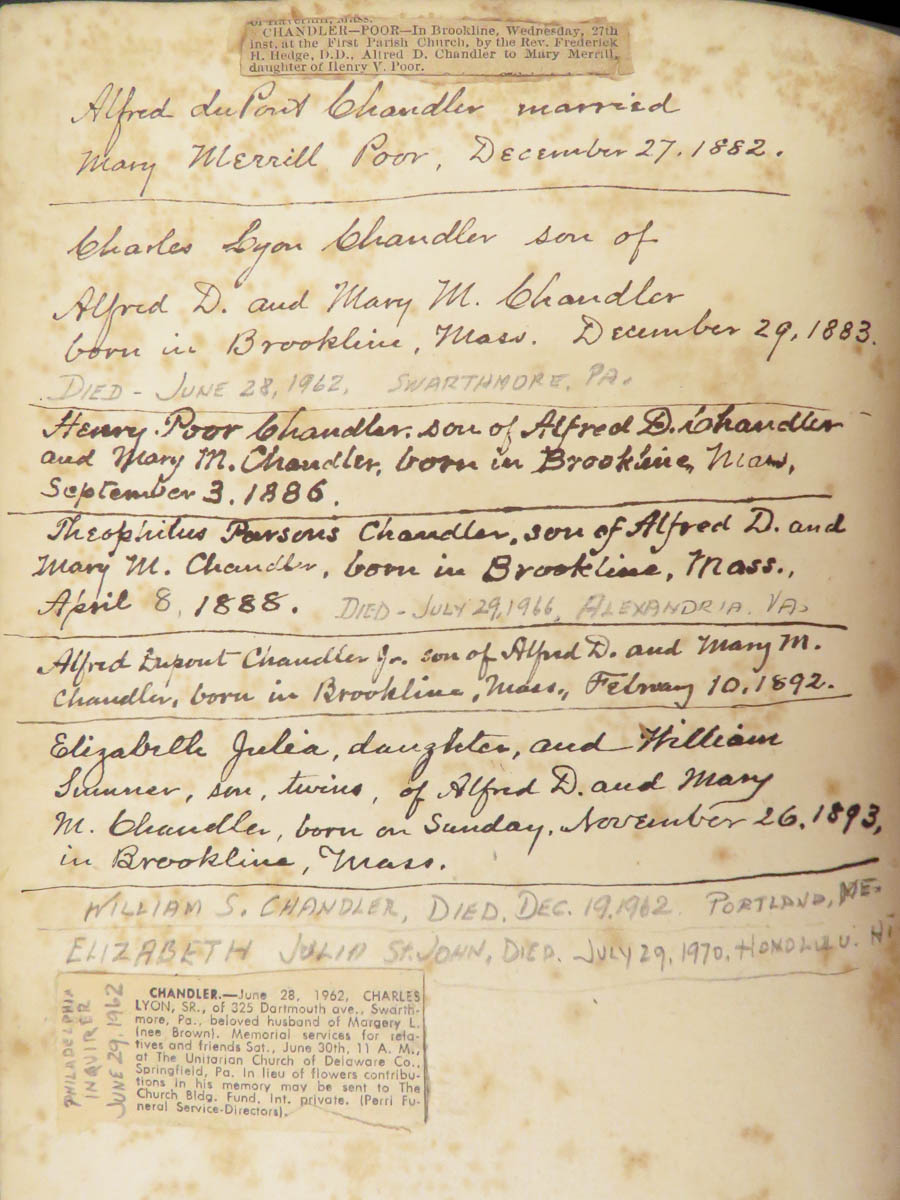 of Haverhill, Mass.
CHANDLER—POOR—In Brookline, Wednesday, 27th
inst. at the First Parish Church, by the Rev. Frederick
H. Hedge, D.D., Alfred D. Chandler to Mary Merrill,
daughter of Henry V. Poor.
Alfred duPont Chandler married
Mary Merrill Poor, December 27. 1882.
Charles Lyon Chandler son of
Alfred D. and Mary M. Chandler
born in Brookline, Mass. December 29, 1883.
DIED - JUNE 28, 1962, SWARTHMORE, PA.
Henry Poor Chandler, son of Alfred D. Chandler
and Mary M. Chandler, born in Brookline, Mass,
September 3, 1886.
Theophilus Parsons Chandler, son of Alfred D. and
Mary M. Chandler, born in Brookline, Mass.,
April 8, 1888. DIED - JULY 29, 1966, ALEXANDRIA, VA.
Alfred Dupont Chandler Jr. son of Alfred D. and Mary M.
Chandler, born in Brookline, Mass., Februay 10, 1892.
Elizabeth Julia, daughter, and William
Sumner, son, twins, of Alfred D. and Mary
M. Chandler, born on Sunday, November 26, 1893,
in Brookline, Mass.
WILLIAM S. CHANDLER, DIED, DEC. 19, 1962 PORTLAND, ME.
ELIZABETH JULIA ST. JOHN, DIED. JULY 29, 1970, HONOLULU. HI
PHILADELPHIA
INQUIRER
JUNE 29, 1962
CHANDLER.—June 28, 1962, CHARLES
LYON, SR., of 325 Dartmouth ave., Swarth-
more, Pa., beloved husband of Margery L.
(nee Brown). Memorial services for rela-
tives and friends Sat., June 30th, 11 A. M.,
at The Unitarian Church of Delaware Co.,
Springfield, Pa. In lieu of flowers contribu-
tions in his memory may be sent to The
Church Bldg. Fund. Int. private. (Perri Fu-
neral Service-Directors).